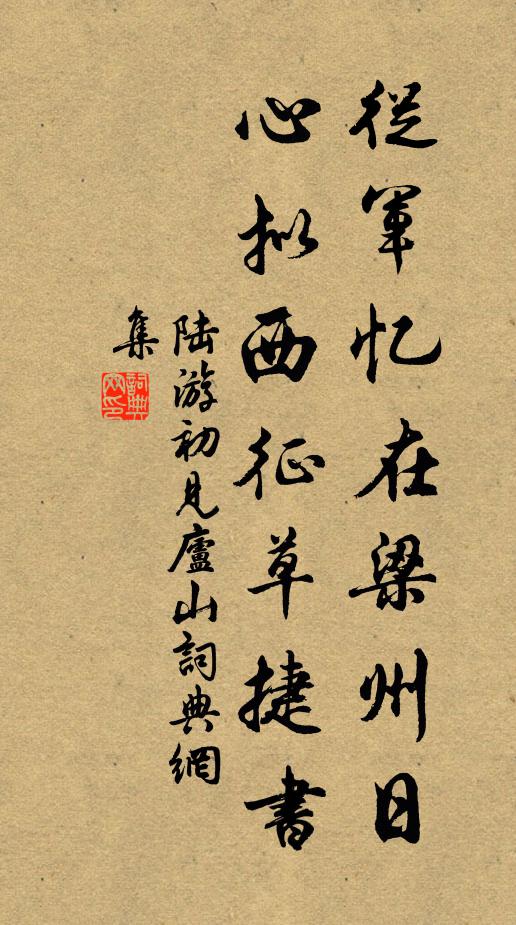 從軍忆在梁州日
心拟西征草捷書
陆游初見廬山詞典網
集
詞典網印